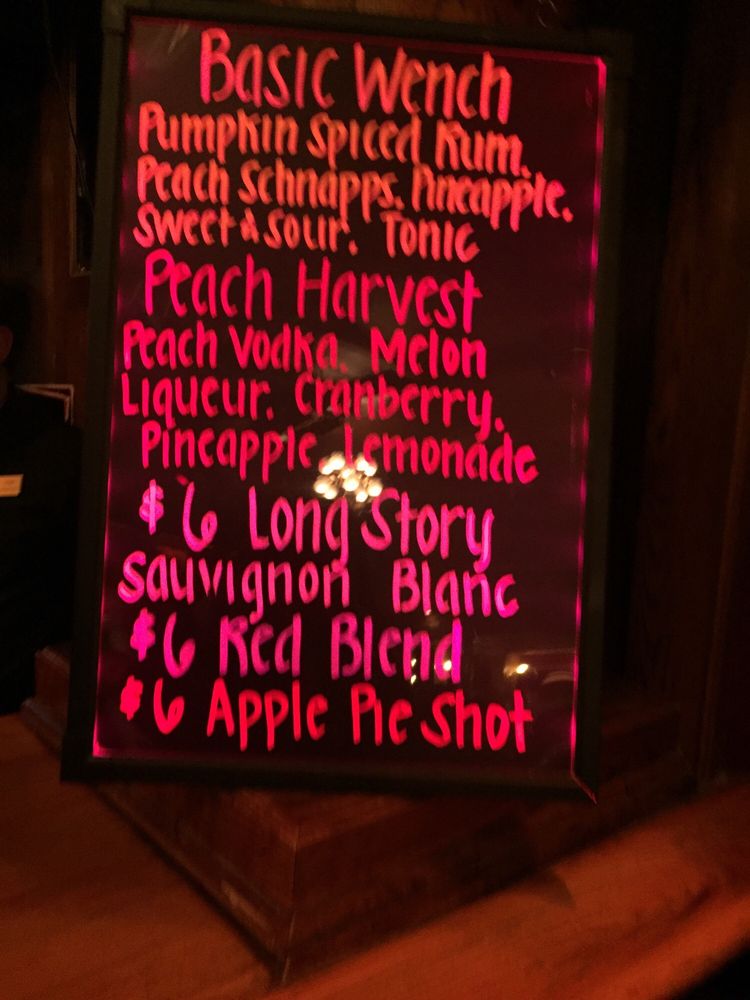 Basic Wench
Pumpkin Spiced Rum.
Peach Schnapps. Pineapple.
Sweet & Sour. Tonic
Peach Harvest
Peach Vodka. Melon
Liqueur. Cranberry.
Pineapple Lemonade
$6 Long Story
Sauvignon Blanc
$6 Red Blend
$6 Apple Pie Shot